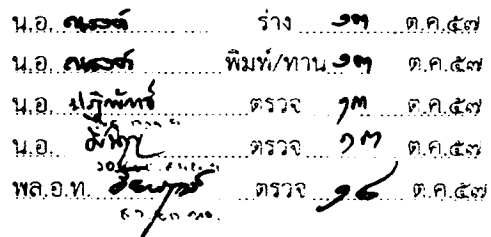 น.อ. ณรงค์ ร่าง ๑๓ ต.ค.๕๗
น.อ. ณรงค์ พิมพ์/ทาน ๑๓ ต.ค.๕๗
น.อ. ตรวจ ๑๓ ต.ค.๕๗
น.อ. ตรวจ ๑๓ ต.ค.๕๗
พล.อ.ท. ตรวจ ๑๔ ต.ค.๕๗